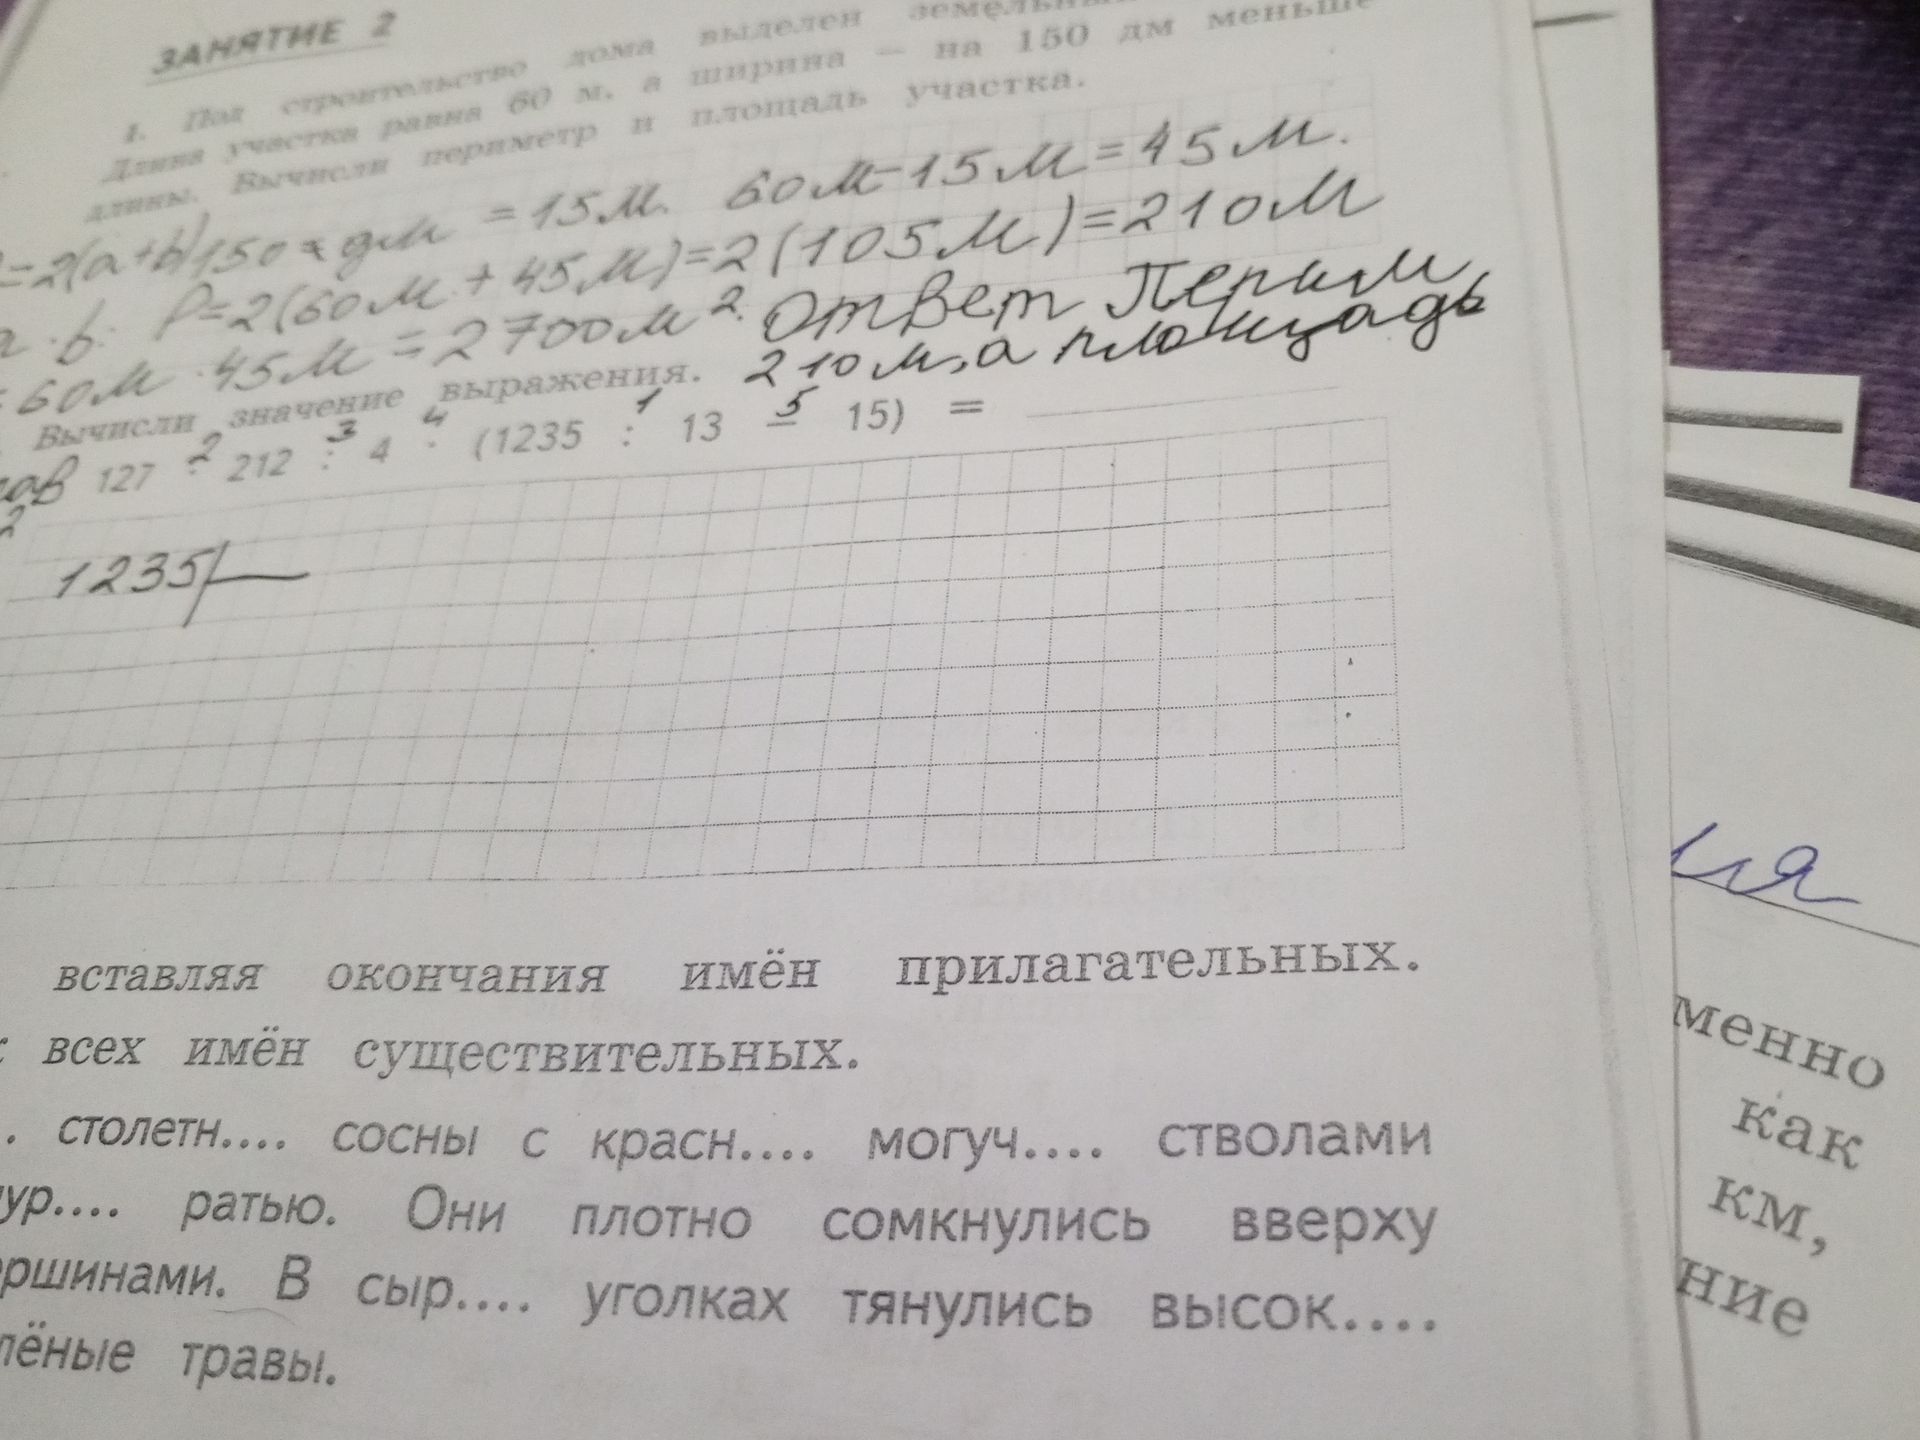 ЗАНЯТИЕ 2
1. Под строительство дома выделен
Длина участка равна 60 м, а ширина – на 150 дм меньше
длины. Вычисли периметр и площадь участка.
=2(a+b) 150 дм = 15м. 60м-15м=45м.
b. P=2(60м+45м)=2(105м)=210м
=60м·45м=2700м². Ответ Перим
210м, а площадь
Вычисли значение выражения.
2 3 4 1 5
127 · 212 : 4 · (1235 : 13 – 15) =
2
1235
вставляя окончания имён прилагательных.
всех имён существительных.
. столетн.... сосны с красн.... могуч.... стволами
ур.... ратью. Они плотно сомкнулись вверху
ршинами. В сыр.... уголках тянулись высок....
лёные травы.
ия
менно
как
км,
ние